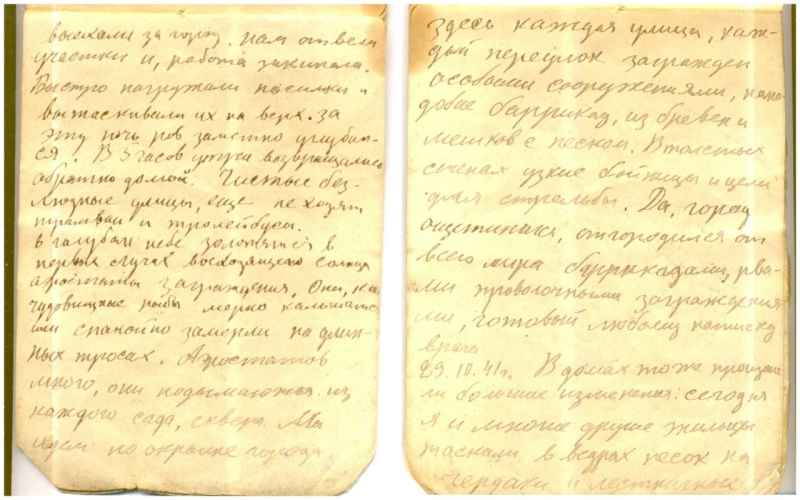 выехали за город. Нам отвели
участки и, работа закипала.
Быстро нагружали носилки и
вытаскивали их на верх. За
эту ночь ров заметно углубил-
ся. В 5 часов утра возвращались
обратно домой. Чистые без-
людные улицы, еще не ходят
трамваи и тролейбусы.
В голубом небе золотятся в
первых лучах восходящего солнца
аростаты заграждения. Они, как
чудовищные рыбы мерно
или спокойно замерли на длин-
ных тросах. Аэростатов
много, они подымаются из
каждого сада, сквера. Мы
идем по окраине города
здесь каждая улица, каж-
дый переулок загражден
особыми сооружениями, напо-
добие баррикад, из бревен и
мешков с песком. В толстых
стенах узкие бойницы и щели
для стрельбы. Да, город
ощетинился, отгородился от
всего мира баррикадами, рва-
ми проволочными заграждения
ми, готовый любому натиску
врага
29.10.41г. В домах тоже произош
ли большие изменения: сегодня
я и многие другие жильцы
таскали в ведрах песок на
чердаки и лестничных